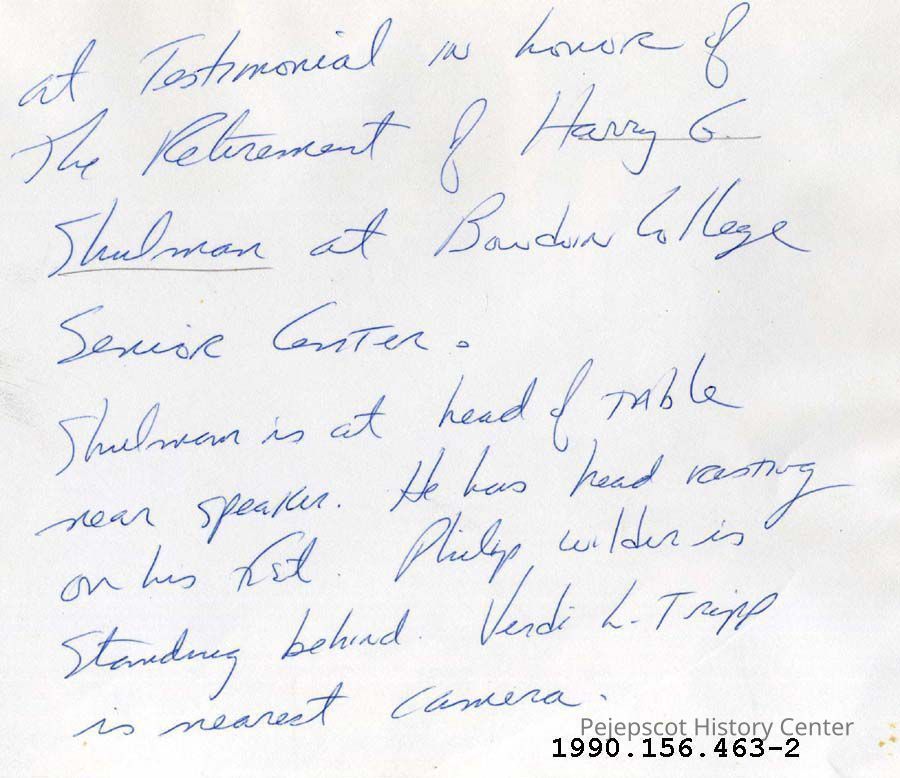 at Testimonial in honor of
The Retirement of Harry G.
Shulman at Bowdoin College
Senior Center.
Shulman is at head of table
near speaker. He has head resting
on his fist. Philip Wilder is
standing behind. Verdi L. Tripp
is nearest camera.
Pejepscot History Center
1990.156.463-2